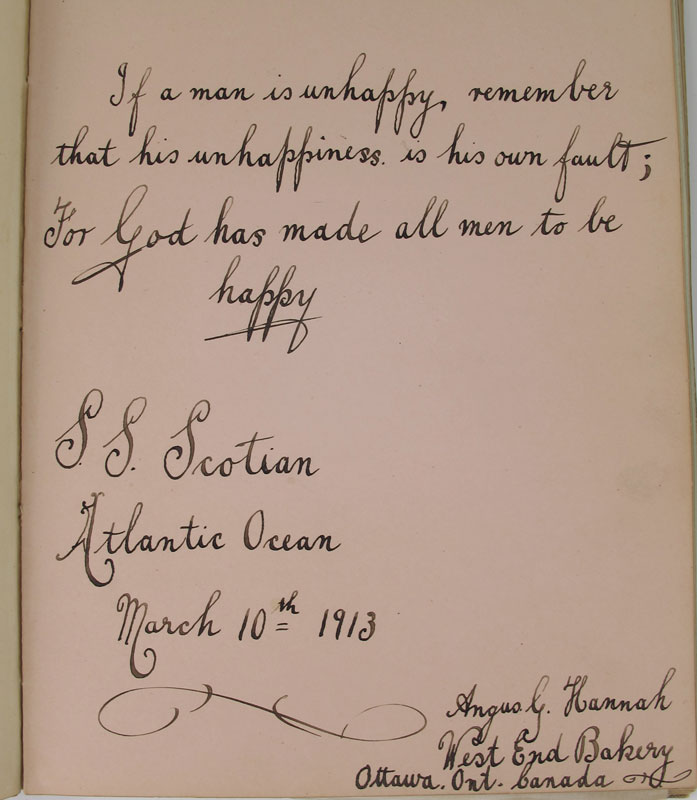 If a man is unhappy, remember
that his unhappiness. is his own fault;
For God has made all men to be
happy
S. S. Scotian
Atlantic Ocean
March 10th 1913
Angus. G. Hannah
West End Bakery
Ottawa. Ont. Canada